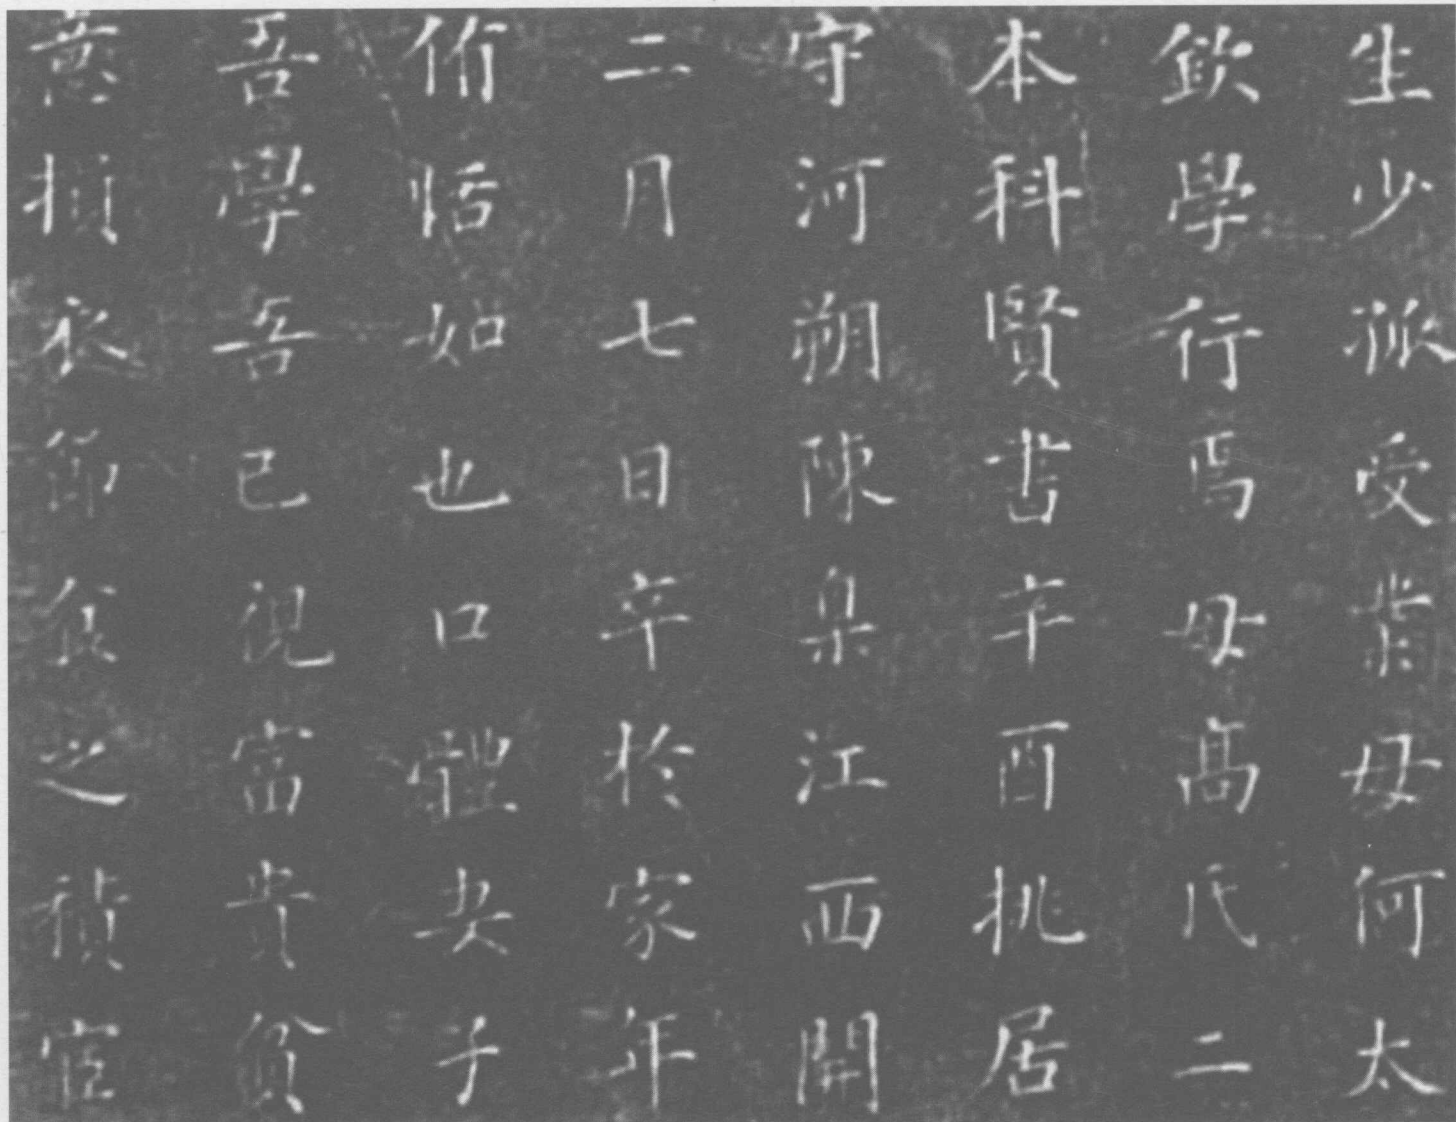 生少受母何太
欽學行焉母高氏二
本科賢書辛酉挑居
守河朔陳臬江西開
二月七日卒於家年
侑恬如也口體安子
吾學吾已視富貴貧
損衣節食之積宦